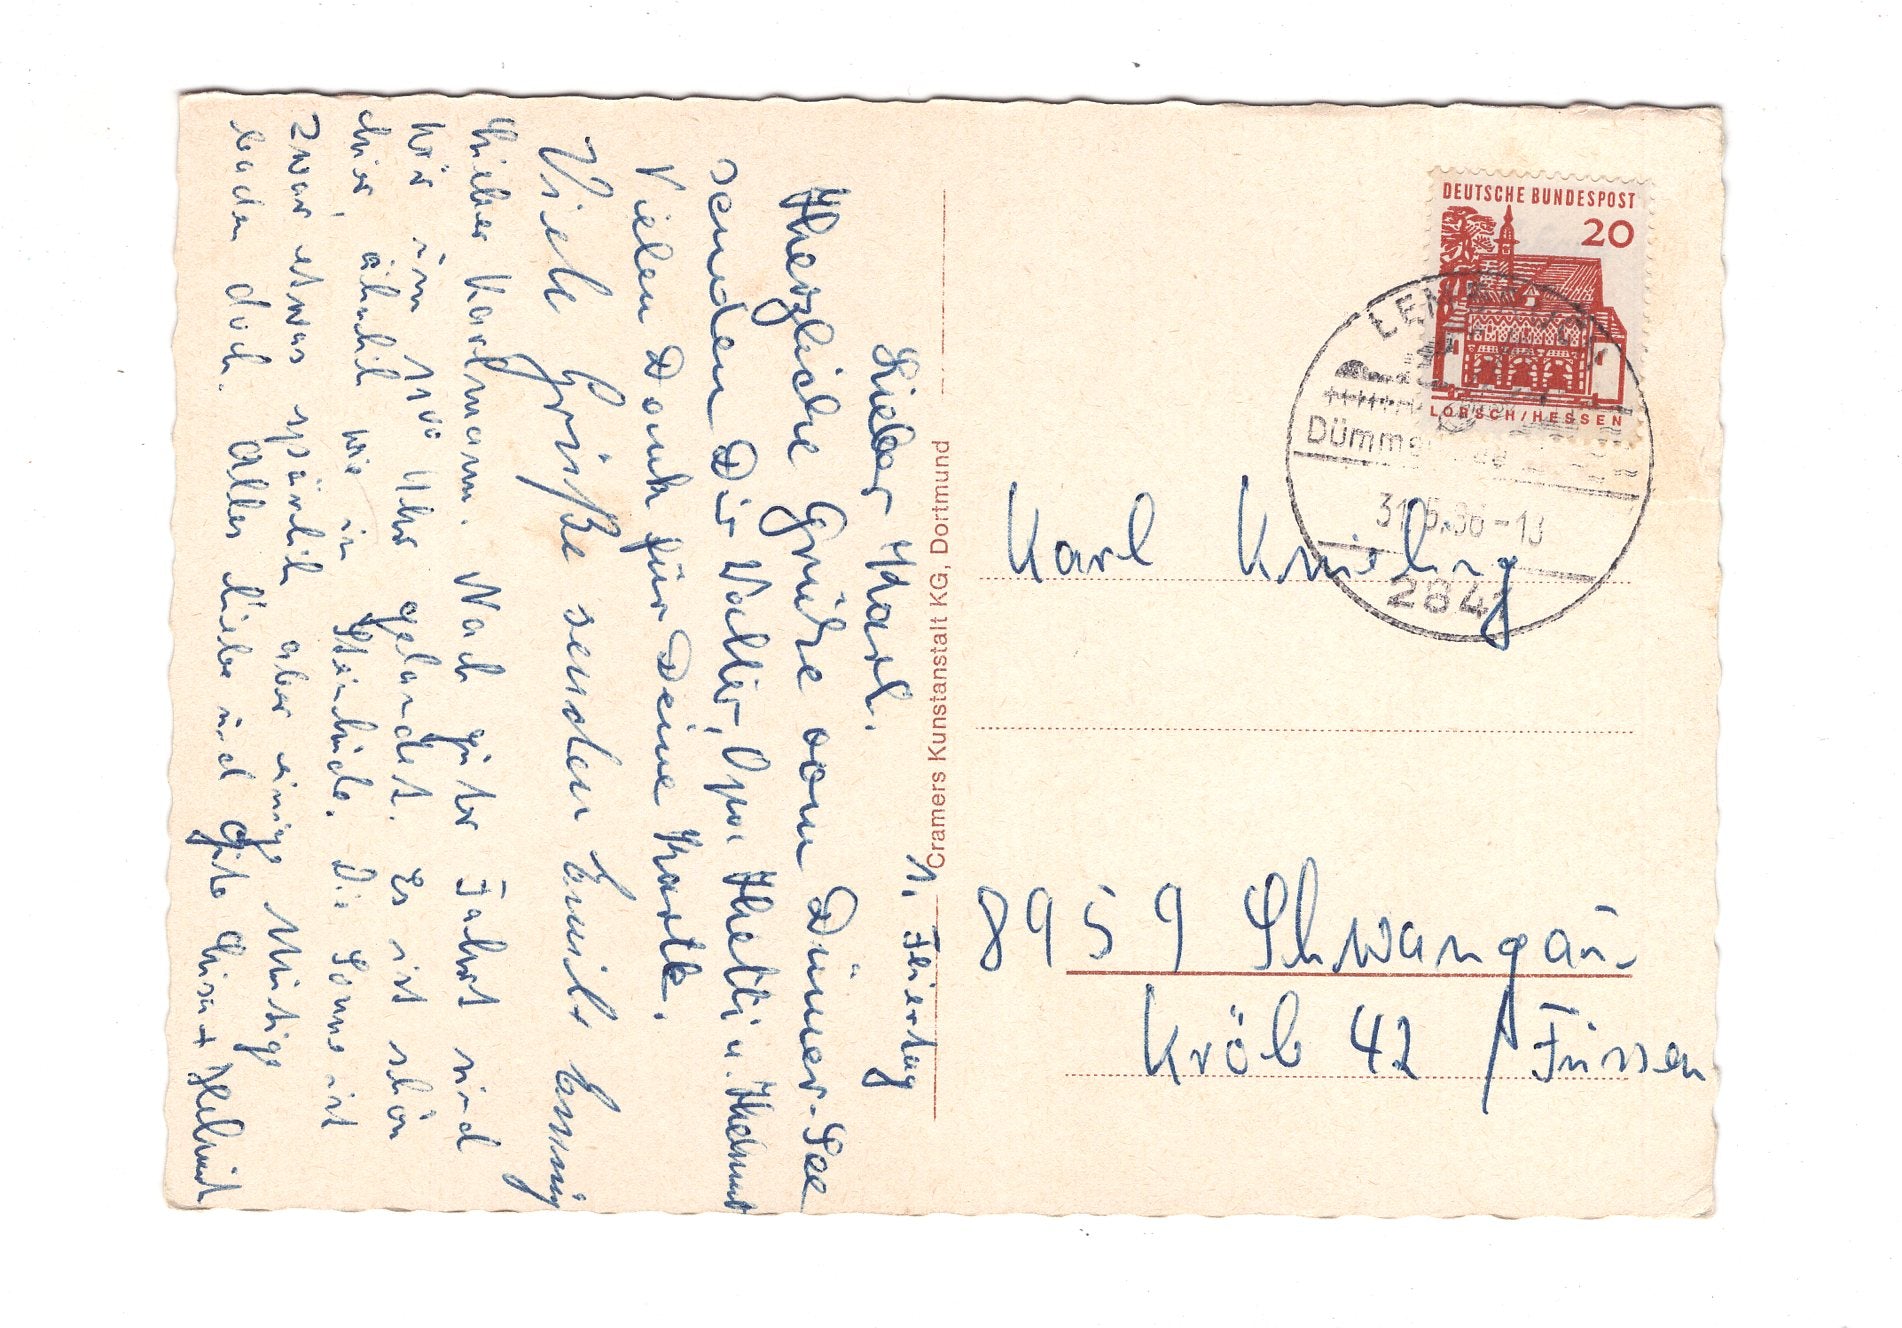 1. Feiertag
Lieber Karl.
Herzliche Grüße vom Dümer-See
senden Dir Walter, Opa Hetti u. Helmut
Vielen Dank für Deine Karte.
Viele Grüße senden Emils Emmy
Lieber Karlmann. Nach guter Fahrt sind
wir um 1100 Uhr gelandet. Es ist schön
hier, ähnlich wie in Steinhude. Die Sonne ist
zwar etwas spärlich aber einige Mutige
baden doch. Alles Liebe und Gute Lisa + Helmut
Cramers Kunstanstalt KG, Dortmund
DEUTSCHE BUNDESPOST
20
LORSCH/HESSEN
Dümmer
31.5.66-13
2841
Karl Knieling
8959 Schwangau.
Kröb 42 / Füssen